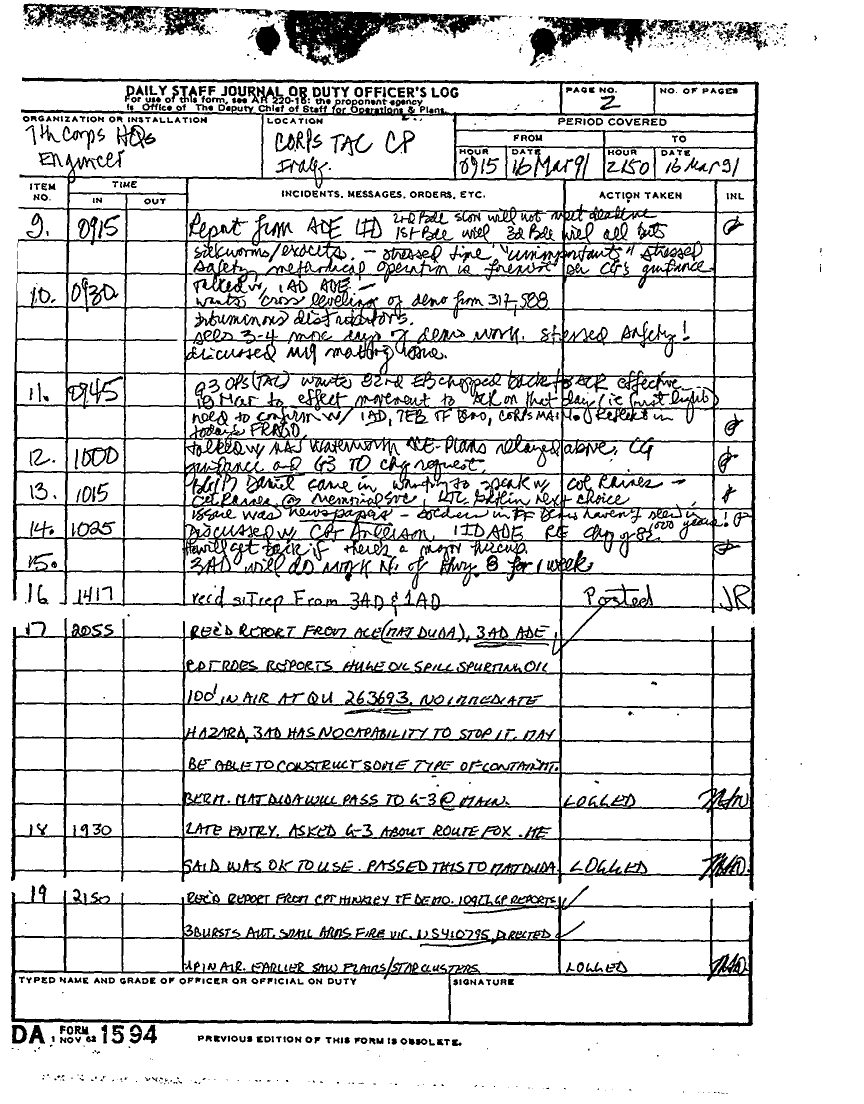 DAILY STAFF JOURNAL OR DUTY OFFICER'S LOG
For use of this form, see AR 220-15; the proponent agency
is Office of The Deputy Chief of Staff for Operations & Plans.
PAGE NO.
2
NO. OF PAGES
ORGANIZATION OR INSTALLATION
7th Corps HQs
Engineer
LOCATION
CORPS TAC CP
Iraq.
PERIOD COVERED
FROM
TO
HOUR
0915
DATE
16 Mar 91
HOUR
2150
DATE
16 Mar 91
ITEM NO.
TIME
IN
OUT
INCIDENTS, MESSAGES, ORDERS, ETC.
ACTION TAKEN
INL
9. 0915 Report from ADE 1ID 2nd Bde slow will not meet deadline
1st Bde will 3d Bde will all but
silkworms/exocets. - stressed time "unimportant" stressed
safety, methodical operation is per CG's guidance
10. 0930 Talked w/ 1AD ADE -
wants cross leveling of demo from 317, 588
bituminous distributors.
sees 3-4 more days of demo work. stressed safety!
discussed
11. 0945 G3 OPS (TAC) wants 82nd EB chopped back to ACR effective
18 Mar to effect movement to ACR on that day (ie first light)
need to confirm w/ 1AD, 7EB TF Demo, CORPS MAIN. Reflect in
today's FRAGO.
12. 1000 talked w/ MAJ ACE-Plans relayed above, CG
guidance and G3 TO chg request.
13. 1015 BG(P) Daniel came in wanting to speak w/ Col Raines -
Col Raines @ memorial svc, LTC next choice
issue was newspapers - soldiers in haven't seen in 1000 years!
14. 1025 Discussed w/ CPT 1ID ADE RE Chop of 82
15. He will get back if there's a major hiccup.
3AD will do work N. of Hwy 8 for 1 week.
16 1417 rec'd siTrep From 3AD & 1AD Posted JR
17 2055 REC'D REPORT FROM ACE (MAJ DUDA), 3AD ADE
CPT ROES REPORTS HUGE OIL SPILL SPURTING OIL
100' IN AIR AT QU 263693. NO IMMEDIATE
HAZARD, 3AD HAS NO CAPABILITY TO STOP IT. MAY
BE ABLE TO CONSTRUCT SOME TYPE OF CONTAINMT.
BERM. MAJ DUDA WILL PASS TO G-3 @ MAIN. LOGGED
18 1930 LATE ENTRY. ASKED G-3 ABOUT ROUTE FOX. HE
SAID WAS OK TO USE. PASSED THIS TO MAJ DUDA LOGGED
19 2150 REC'D REPORT FROM CPT HINKLEY TF DEMO. 109TH GP REPORTS
3 BURSTS AUT. SMALL ARMS FIRE VIC. NS410795, DIRECTED
UP IN AIR. EARLIER SAW FLAIRS/STAR CLUSTERS LOGGED
TYPED NAME AND GRADE OF OFFICER OR OFFICIAL ON DUTY
SIGNATURE
DA FORM 1 NOV 62 1594
PREVIOUS EDITION OF THIS FORM IS OBSOLETE.